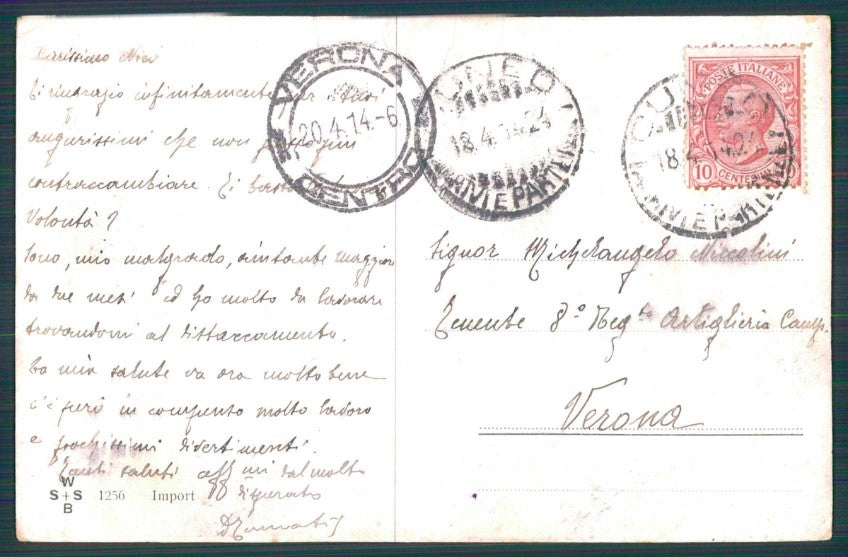 Carissimo
Ti ringrazio infinitamente per tuoi
augurissimi che non posso
contraccambiare. Ti basta
Volontà?
Sono, mio malgrado, aiutante maggiore
da due mesi ed ho molto da lavorare
trovandomi al distaccamento.
La mia salute va ora molto bene
c'è però in compenso molto lavoro
e pochissimi divertimenti.
Tanti saluti aff.mi dal molto
disperato
W
S+S
B
1256 Import
VERONA
20.4.14.-6
CENTRO
CUNEO
18.4.14.24
ARRIVI E PARTENZE
CUNEO
18.4.14.24
ARRIVI E PARTENZE
POSTE ITALIANE
10 CENTESIMI 10
Signor Michelangelo Niccolini
Tenente 8º Regto Artiglieria Camp.
Verona